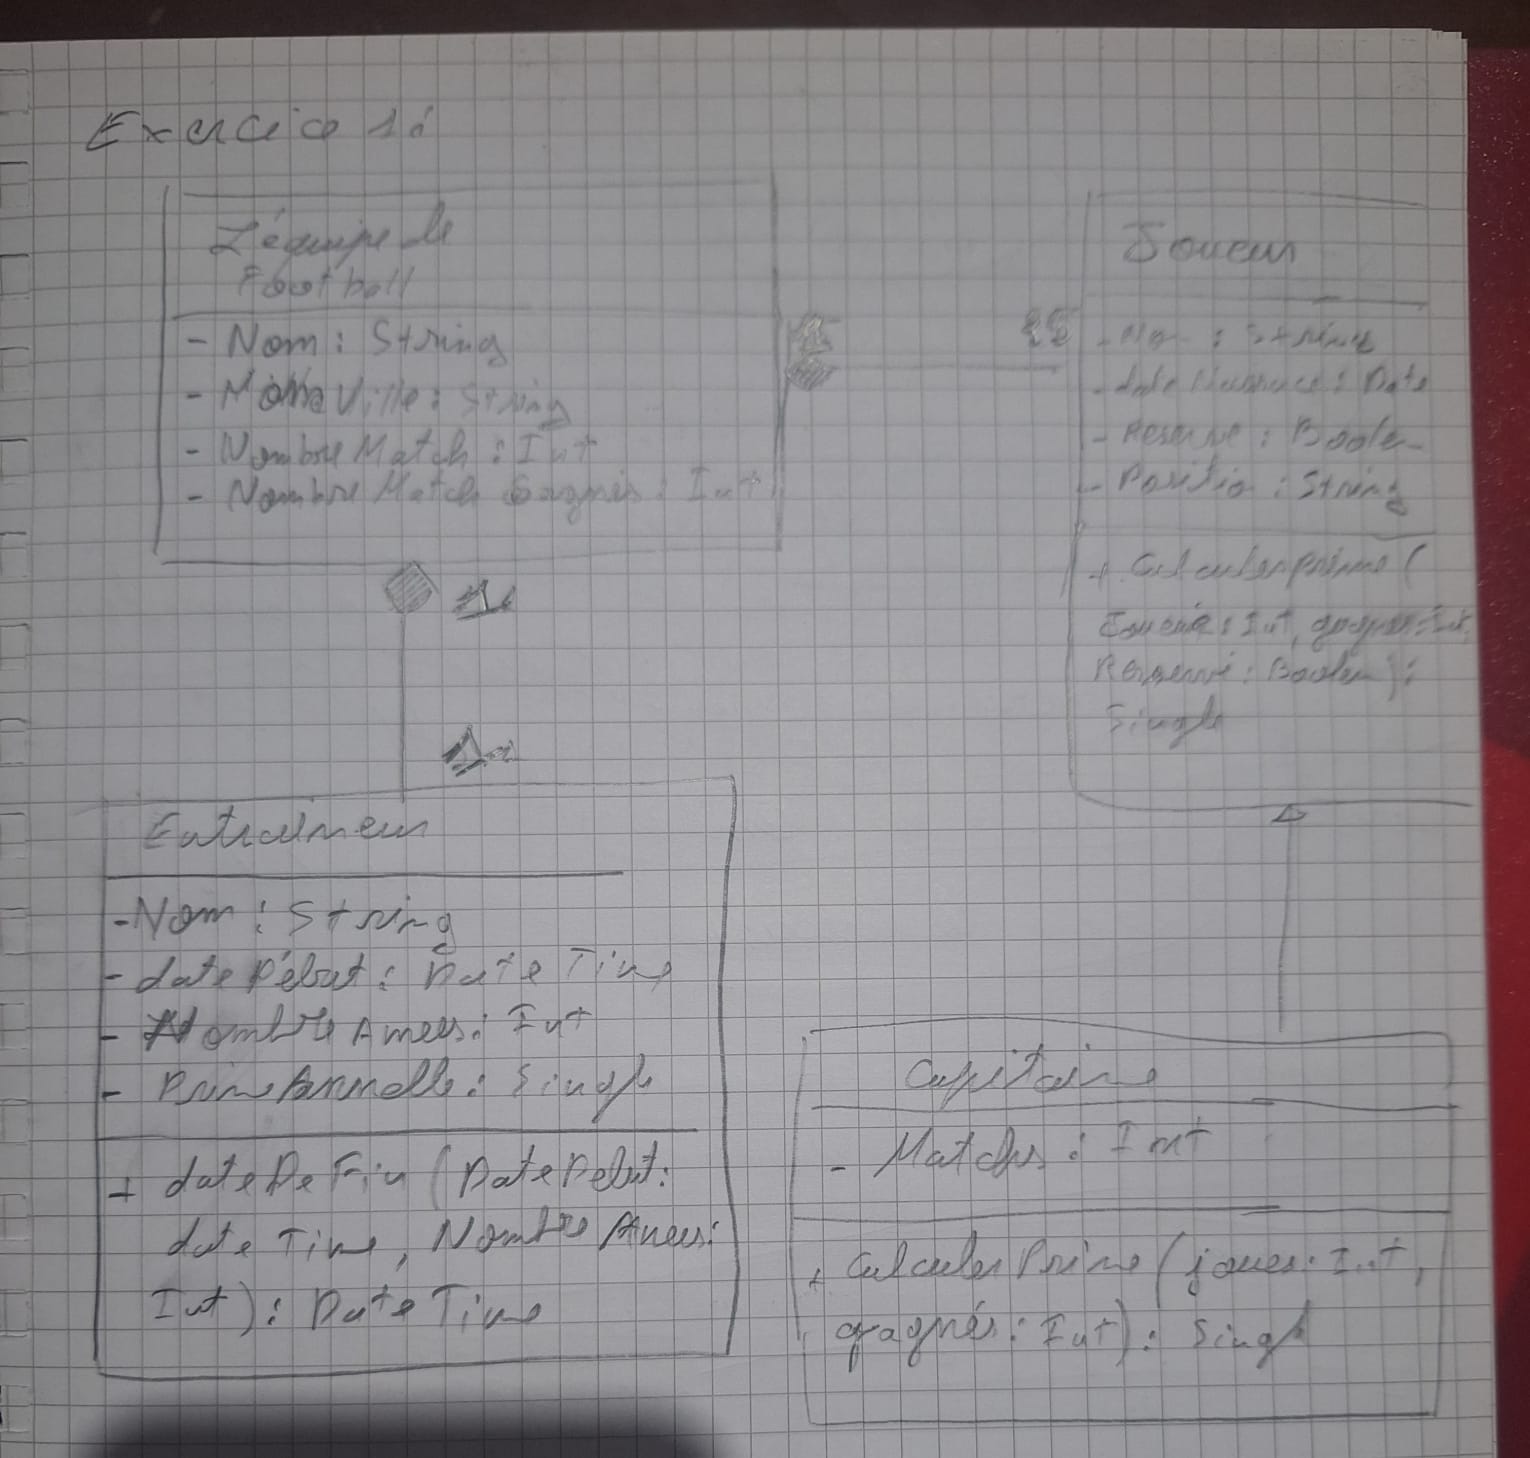 Exercice 1:
L'équipe de
Football
- Nom: String
- Nom Ville: String
- Nombre Match: Int
- Nombre Match Gagnés: Int
1
22
Joueur
- Nom: String
- date Naissance: Date
- Reserve: Boolen
- Position: String
+ Calculerprime(
Int, gagnes: Int
Reserve: Boolen):
Single
1
1
Entraîneur
- Nom: String
- date Début: Date Time
- Nombre Anees: Int
- Prime Annuelle: Single
+ date De Fin (Date Debut:
date Time, Nombre Anees:
Int): Date Time
Capitaine
- Matchs: Int
+ Calculer Prime (joues: Int,
gagnés: Int): Single